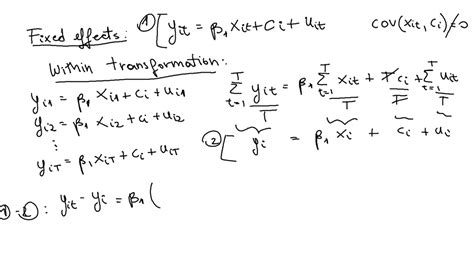 Fixed effects: ① [ yit = β1 xit + ci + uit cov(xit, ci) ≠ 0
Within transformation:
yi1 = β1 xi1 + ci + ui1
yi2 = β1 xi2 + ci + ui2
⋮
yiT = β1 xiT + ci + uiT
∑_{t=1}^{T} yit / T = β1 ∑_{t=1}^{T} xit / T + T ci / T + ∑_{t=1}^{T} uit / T
② [ yi = β1 xi + ci + ui
① - ②: yit - yi = β1 (